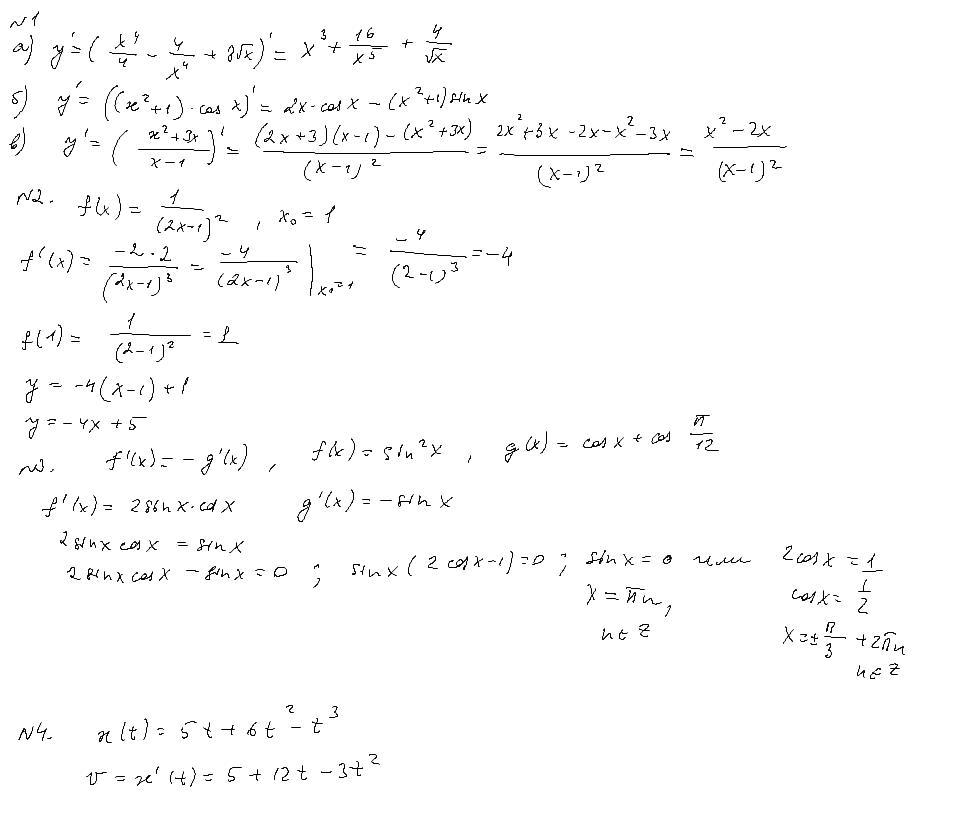 №1
а) y' = (x⁴/4 − 4/x⁴ + 8√x)' = x³ + 16/x⁵ + 4/√x
б) y' = ((x²+1)·cos x)' = 2x·cos x − (x²+1) sin x
в) y' = ((x²+3x)/(x−1))' = ((2x+3)(x−1) − (x²+3x))/(x−1)² = (2x²+3x−2x−x²−3x)/(x−1)² = (x²−2x)/(x−1)²
№2. f(x) = 1/(2x−1)², x₀ = 1
f'(x) = (−2·2)/(2x−1)³ = −4/(2x−1)³ |ₓ₀₌₁ = −4/(2−1)³ = −4
f(1) = 1/(2−1)² = 1
y = −4(x−1)+1
y = −4x+5
№3. f'(x) = −g'(x), f(x) = sin²x, g(x) = cos x + cos π/12
f'(x) = 2 sin x·cos x g'(x) = −sin x
2 sin x cos x = sin x
2 sin x cos x − sin x = 0; sin x (2 cos x−1) = 0; sin x = 0 или 2 cos x = 1
x = πn, cos x = 1/2
n∈Z x = ± π/3 + 2πn
n∈Z
№4. x(t) = 5t + 6t² − t³
v = x'(t) = 5 + 12t − 3t²